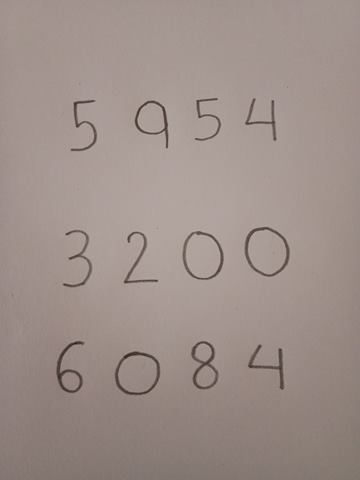 5 9 5 4
3 2 0 0
6 0 8 4